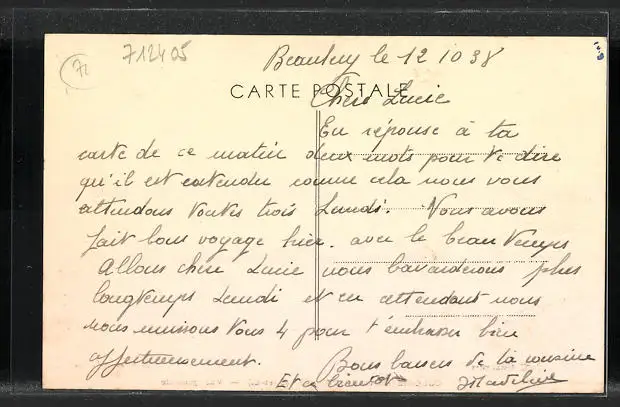 72
712405
le 12 10 38
CARTE POSTALE
Chère Lucie
En réponse à ta
carte de ce matin deux mots pour te dire
qu'il est entendu comme cela nous vous
attendons toutes trois Lundi. Nous avons
fait bon voyage hier. avec le beau temps
Allons chère Lucie nous bavarderons plus
longtemps Lundi et en attendant nous
nous unissons tous 4 pour t'embrasser bien
affectueusement. Bons baisers de ta cousine
Et a bientot Madeleine